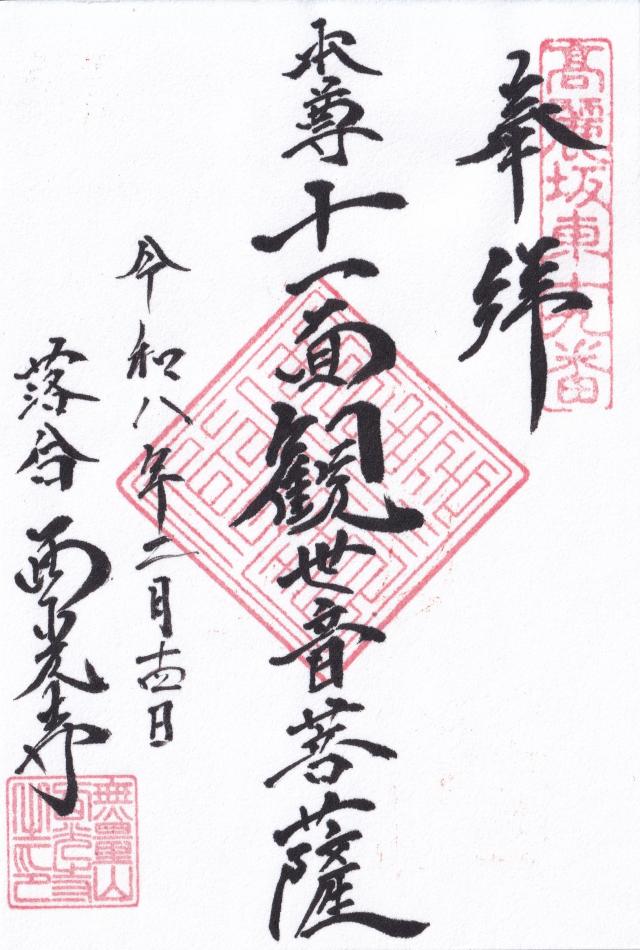 高麗坂東十九番
奉拝
本尊十一面観世音菩薩
令和八年二月十四日
落合西光寺
無量山西光寺之印